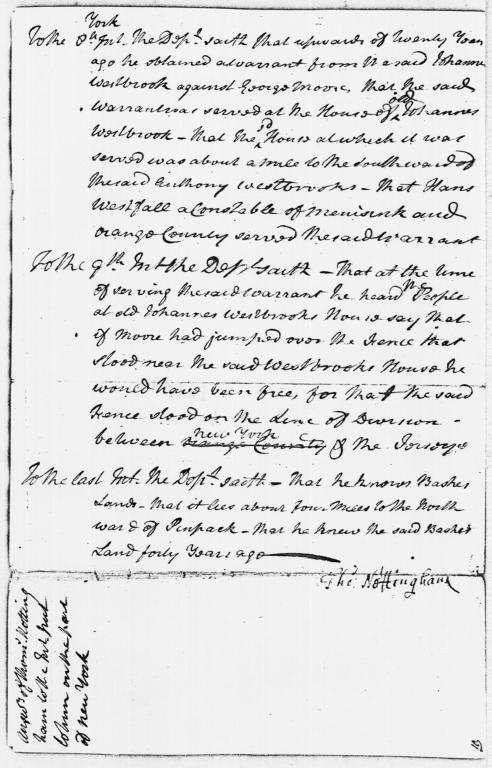 York
To the 8th Int. The Dept. saith that upwards of Twenty Years
ago he obtained a warrant from the said Johannes
Westbrook against George Moore, that the said
warrant was served at the House of old Johannes
Westbrook - that the sd House at which it was
served was about a mile to the southward of
the said Anthony Westbrooks - that Hans
Westfall a Constable of Menisink and
Orange County served the said Warrant
To the 9th Int the Dept saith - That at the time
of serving the said warrant he heard People
at old Johannes Westbrooks House say that
if Moore had jumped over the Fence that
stood near the said Westbrooks House he
would have been free, for that the said
Fence stood on the Line of Division -
between Orange County New York & the Jerseys
To the last Int. The Dept. saith - that he knows Bashes
Land - that it lies about four miles to the North
ward of Pinpack - that he knew the said Bashes
Land forty Years ago
Tho: Nottingham
Answr. of Thoms. Notting
ham to the Int. put
to him on the part
of New York